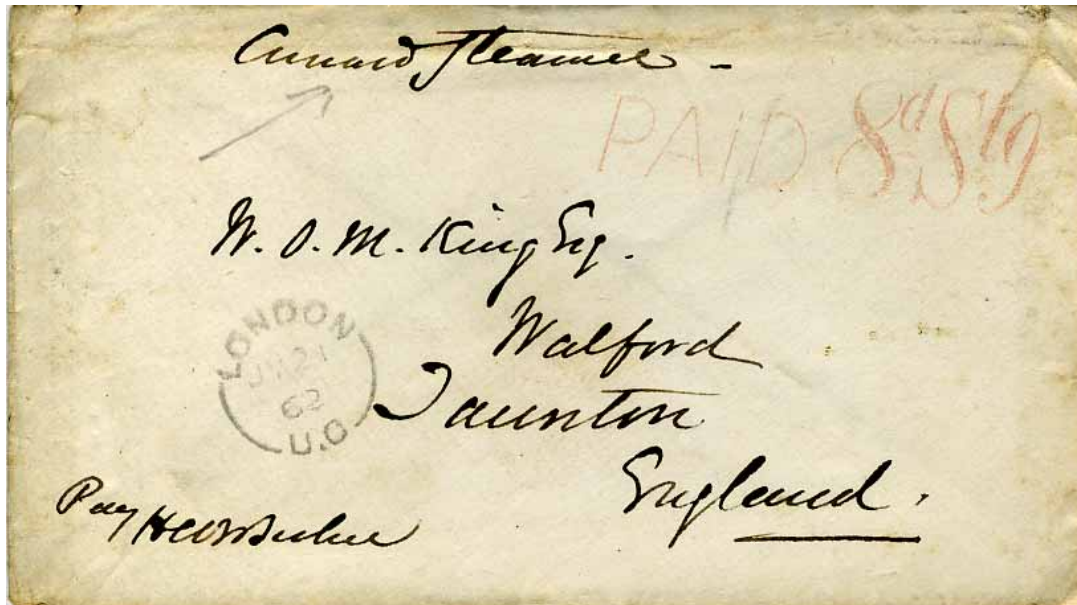 Cunard Steamer -
PAID 8d Stg
W. O. M. King Esq.
Walford
Taunton
England.
LONDON
62
U.C
Pay